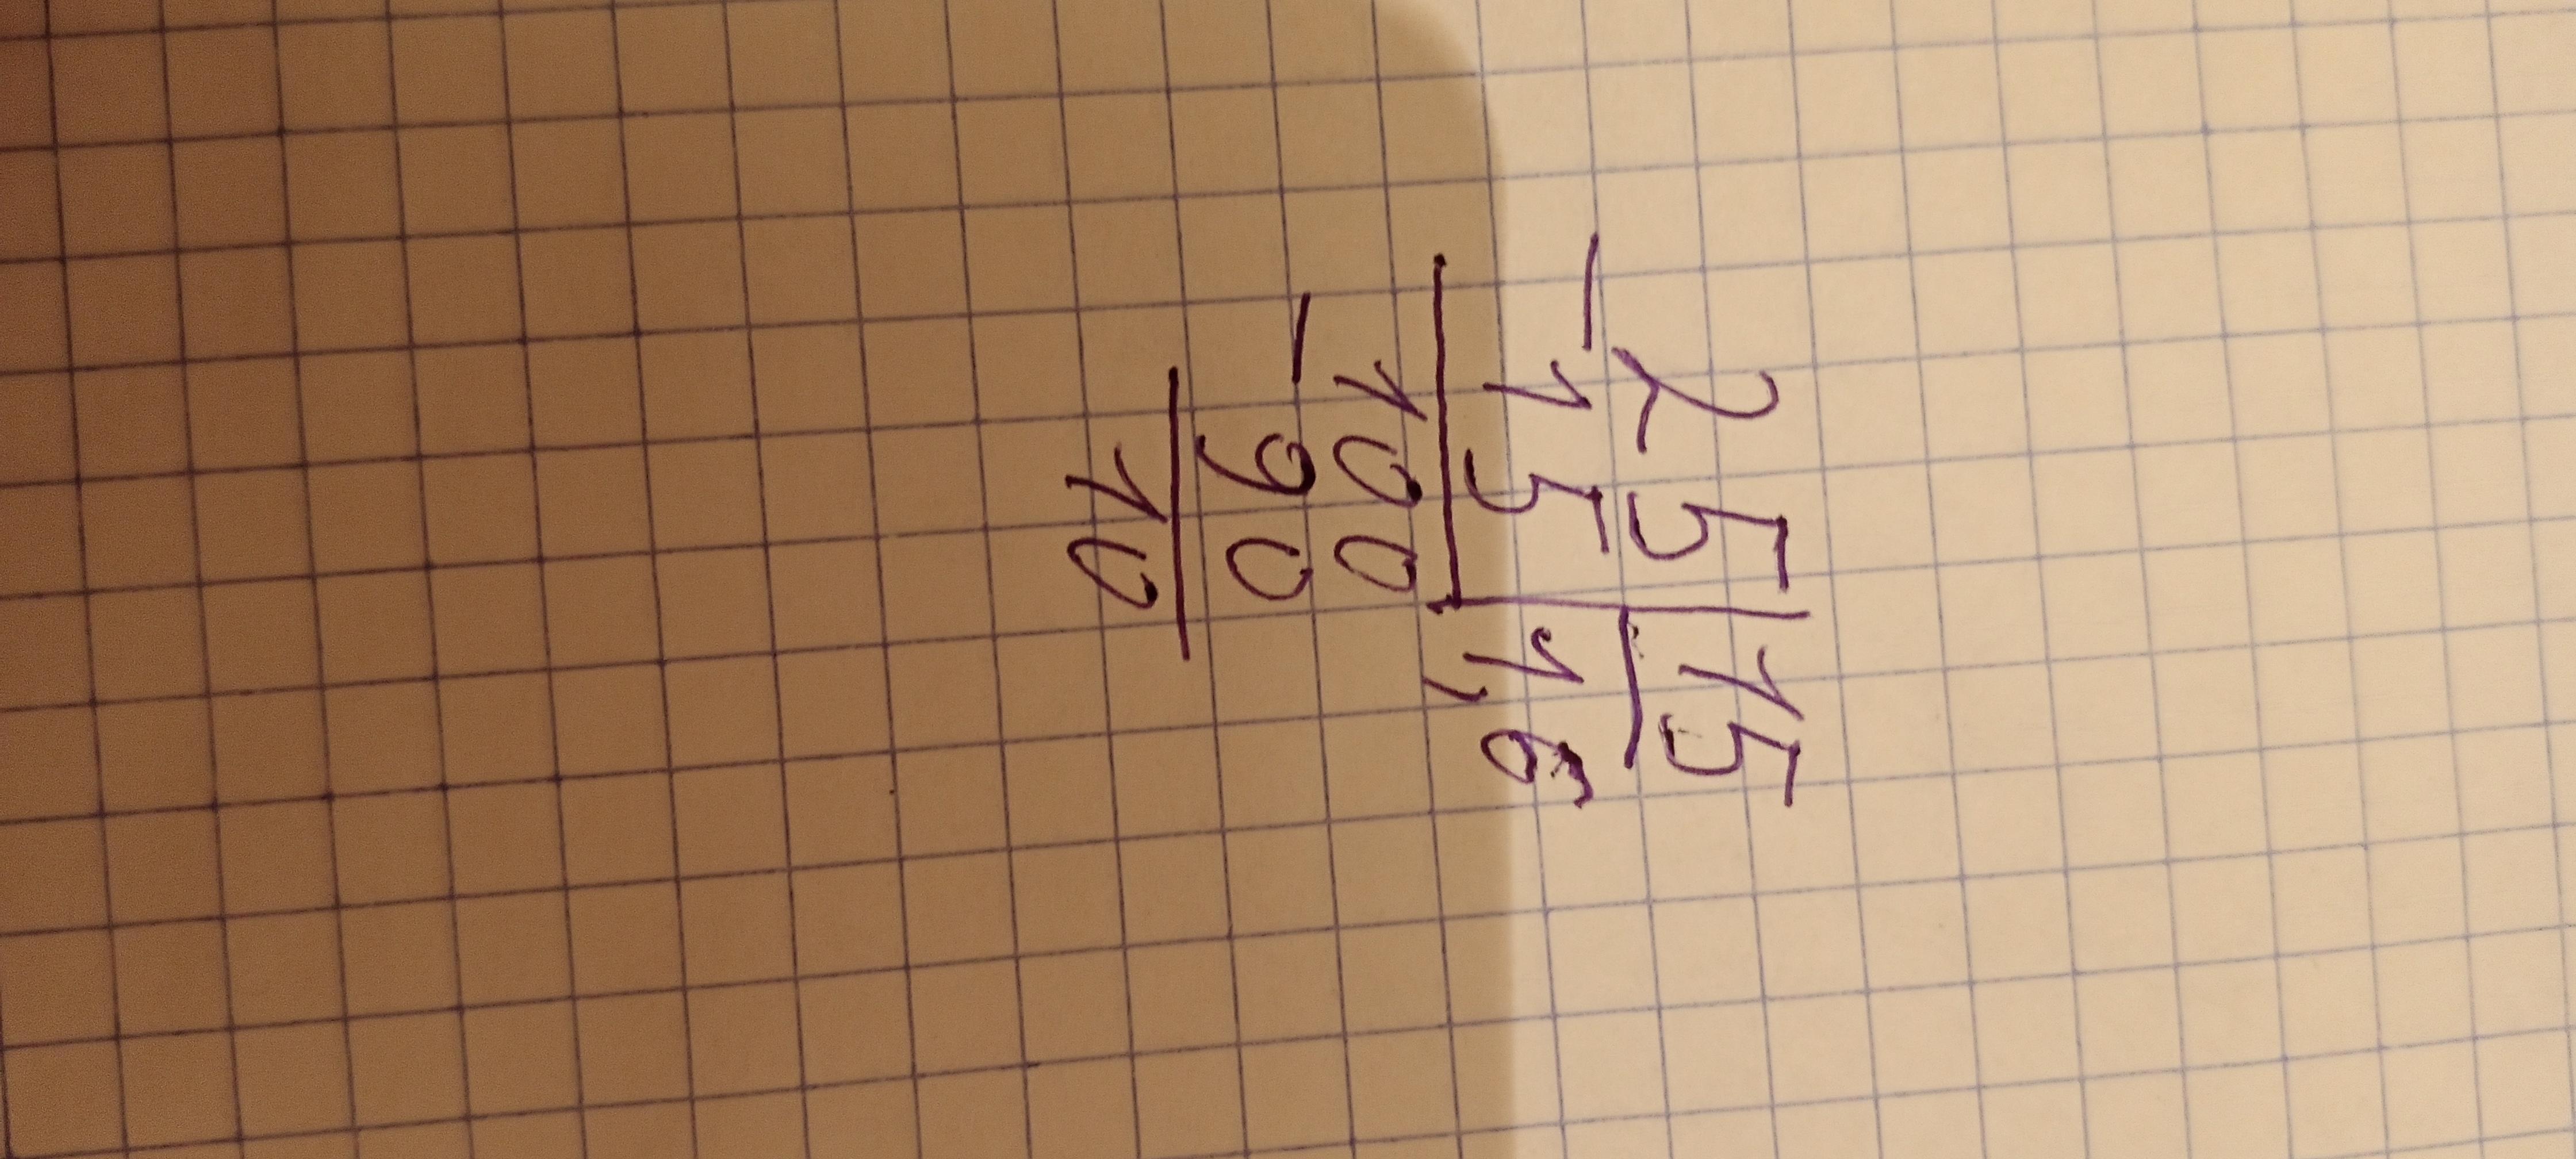 25 | 15
- 15 | 1,6
100
- 90
10